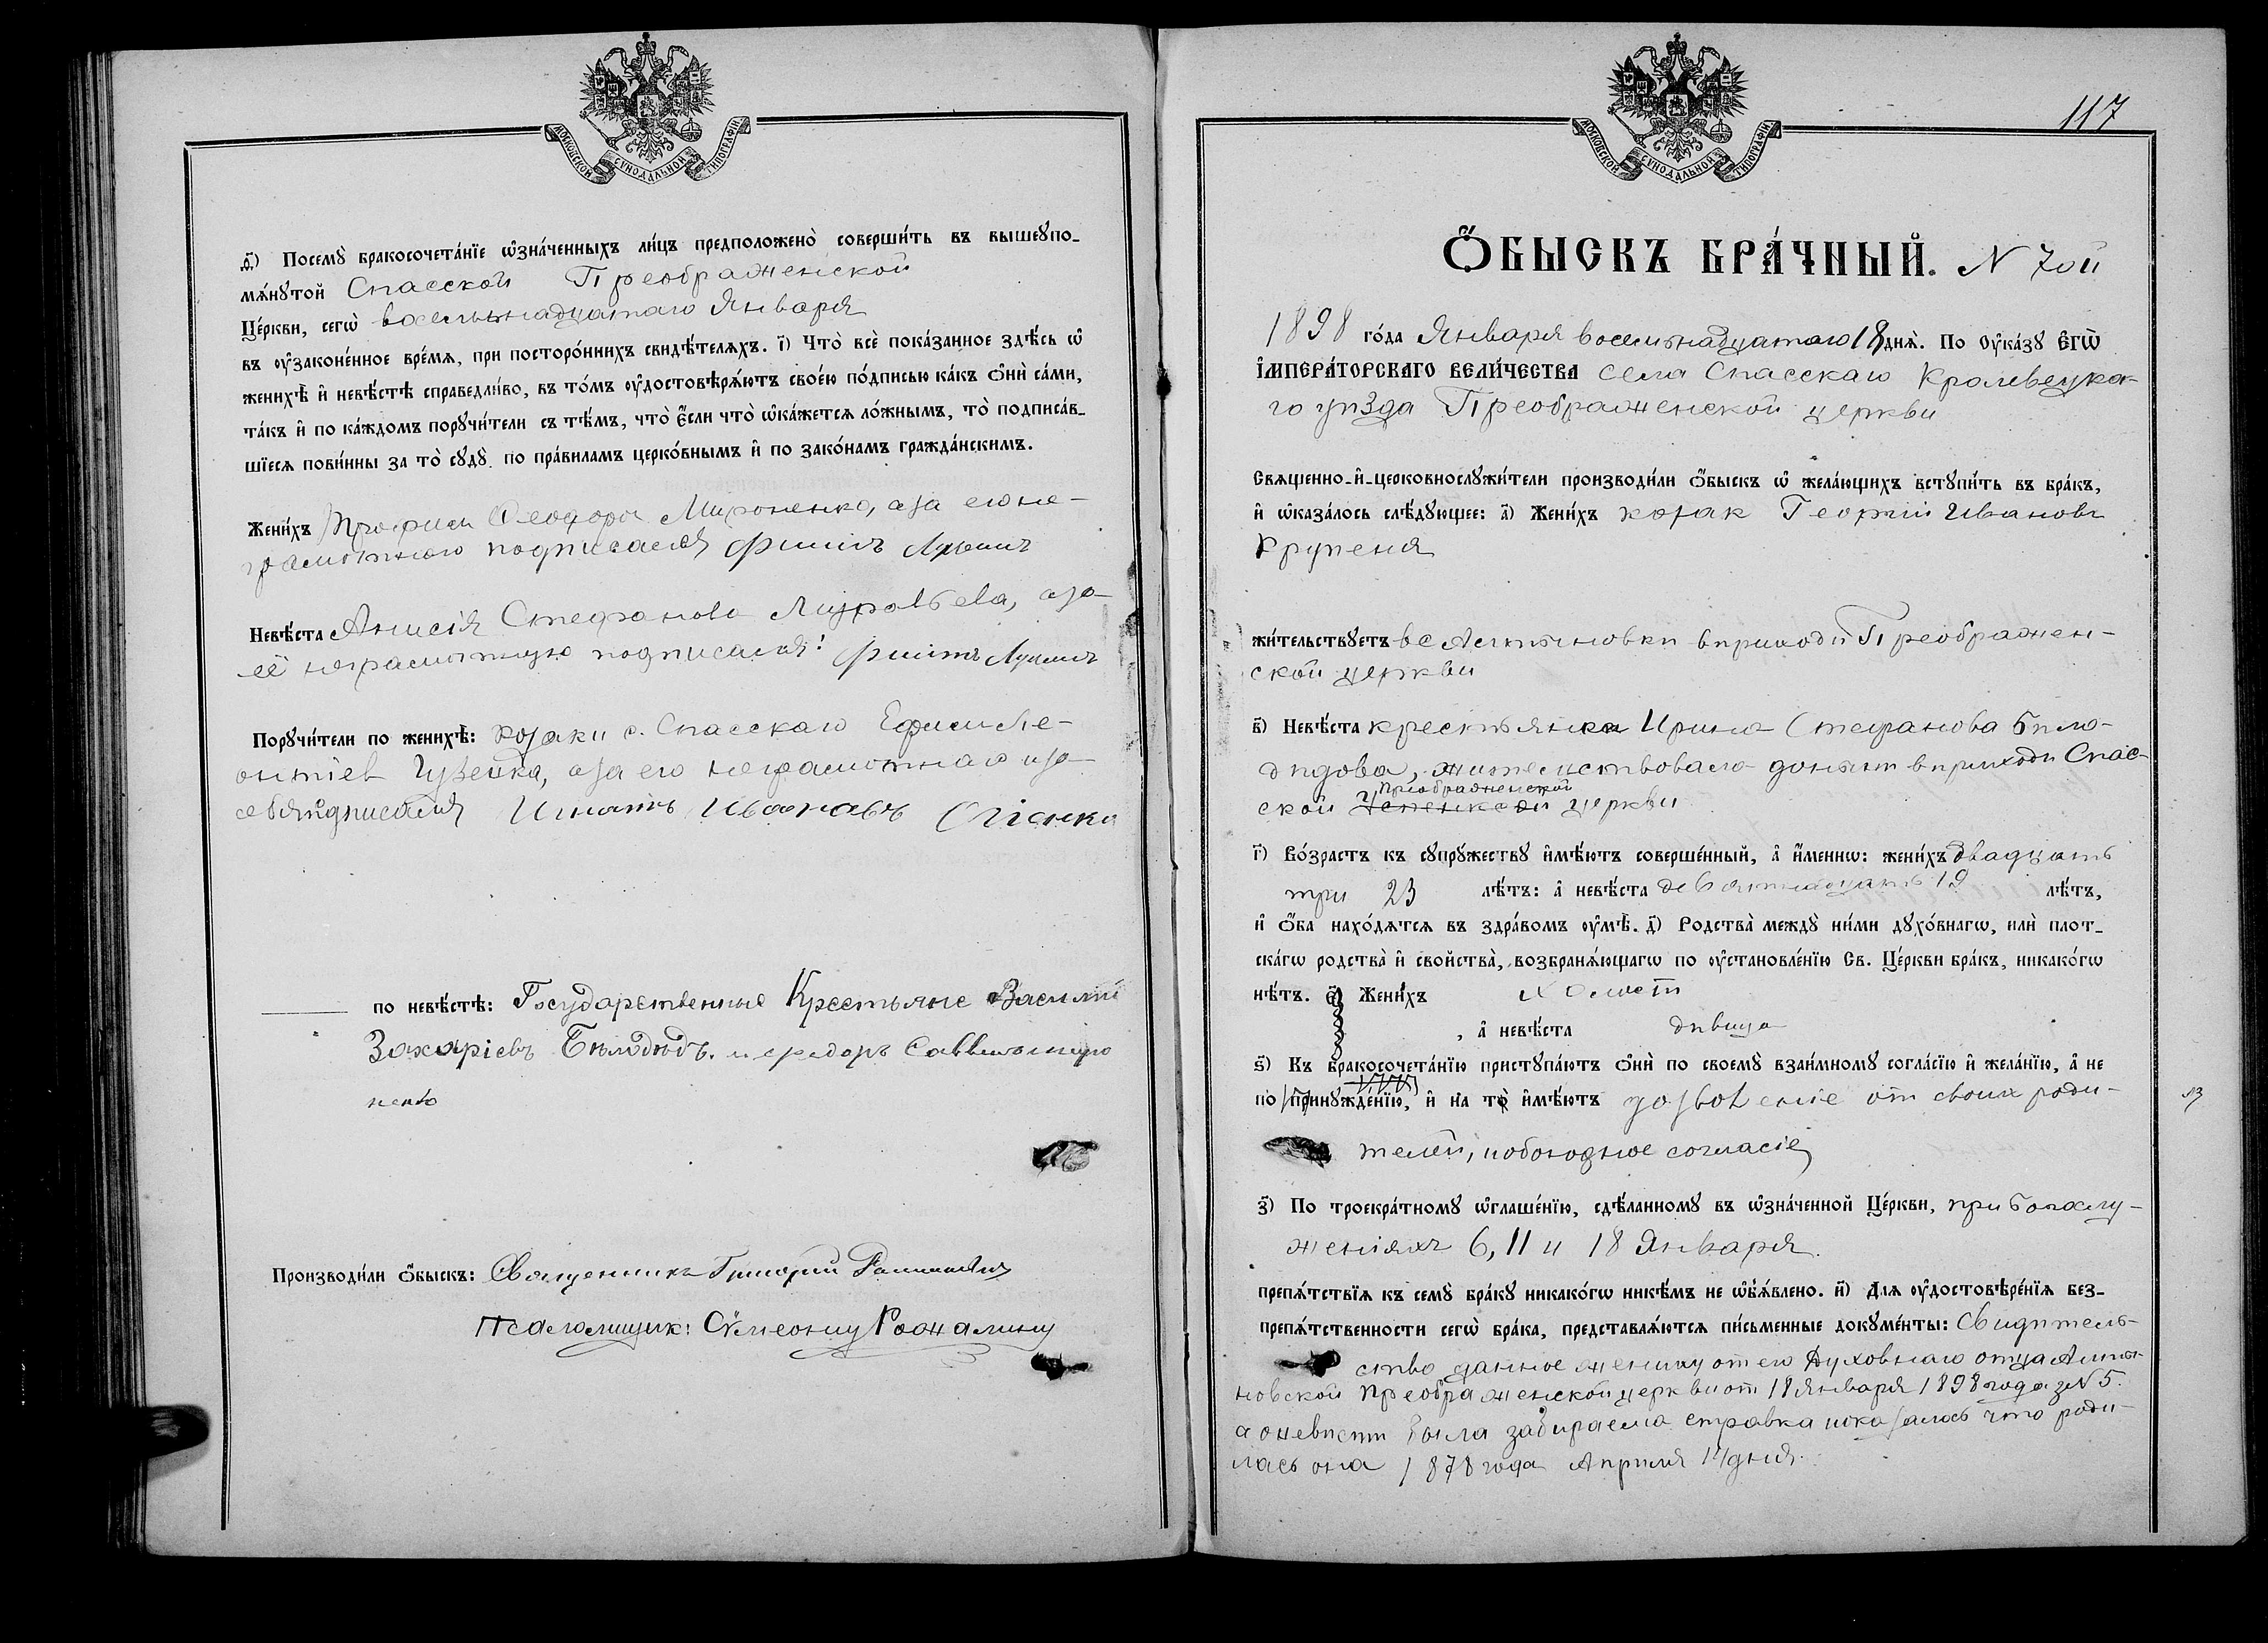 МОСКОВСКОЙ СУНОДАЛЬНОЙ ТИПОГРАФІИ
ѳ҃) Посемꙋ̀ бракосочета́нїе ѡ҆зна́ченныхъ ли́цъ предположено̀ соверши́ть въ вышеꙋпо-
мѧ́нꙋтой Спасской Преображенской
Це́ркви, сегѡ̀ восемьнадцатаго Января
въ ᲂу҆законе́нное вре́мѧ, при посторо́ннихъ свидѣ́телѧхъ. і҃) Что̀ всѐ пока́занное здѣ́сь ѡ҆
женихѣ̀ и҆ невѣ́стѣ справедли́во, въ то́мъ ᲂу҆достовѣрѧ́ютъ свое́ю по́дписью ка́къ ѻ҆нѝ са́ми,
та́къ и҆ по ка́ждомъ порꙋчи́тели съ тѣ́мъ, что̀ є҆́сли что̀ ѡ҆ка́жетсѧ ло́жнымъ, то̀ подписа́в-
шїесѧ пови́нны за то̀ сꙋдꙋ̀ по пра́виламъ церко́внымъ и҆ по зако́намъ гражда́нскимъ.
Жени́хъ Трофим Феодоров Мироненко, а за его не-
грамотного подписался
Невѣ́ста Анисія Стефанова Муравьева, а за
её неграмотную подписался:
Порꙋчи́тели по женихѣ̀: козаки с. Спасскаго Ефим Ле-
онтіев а за его неграмотнаго и за
себя подписался Игнатъ Ивановъ
по невѣ́стѣ: Государственные Крестьяне Василий
Захаріевъ Бѣлодѣдъ. и Федоръ Саввичъ Миро
ненко
Производи́ли ѻ҆́быскъ: Священникъ Григорий
Псаломщик: Сѵмеонъ
117
МОСКОВСКОЙ СУНОДАЛЬНОЙ ТИПОГРАФІИ
Ѻ҆́БЫСКЪ БРА́ЧНЫЙ. N 7ой
1898 го́да Января восемьнадцатаго 18 днѧ̀. По ᲂу҆ка́зꙋ Є҆гѡ̀
І҆мпера́торскаго Вели́чества села Спасскаго Кролевецка-
го уѣзда Преображенской церкви
Свѧщенно-и҆-церковнослꙋжи́тели производи́ли ѻ҆́быскъ ѡ҆ жела́ющихъ встꙋпи́ть въ бра́къ,
и҆ ѡ҆каза́лось слѣ́дꙋющее: а҃) Жени́хъ козак Георгій Ивановъ
Крупеня
жи́тельствꙋетъ в с Алтыновки в приходѣ Преображен-
ской церкви
в҃) Невѣ́ста крестьянка Ирина Стефанова Бѣло-
дѣдова, жительствовала донынѣ в приходѣ Спас-
ской Успенской Преображенской церкви
г҃) Во́зрастъ къ сꙋпрꙋ́жествꙋ и҆мѣ́ютъ соверше́нный, а҆ и҆́менно: жени́хъ двадцать
три 23 лѣ́тъ: а҆ невѣ́ста девятнадцать 19 лѣ́тъ,
и҆ ѻ҆́ба нахо́дѧтсѧ въ здра́вомъ ᲂу҆мѣ̀. д҃) Родства̀ междꙋ̀ ни́ми дꙋхо́внагѡ, илѝ плот-
ска́гѡ родства̀ и҆ свойства̀, возбранѧ́ющагѡ по ᲂу҆становле́нїю Св. Це́ркви бра́къ, никако́гѡ
нѣ́тъ. є҃) Жени́хъ холост
, а҆ невѣ́ста дѣвица
ѕ҃) Къ бракосочета́нїю пристꙋпа́ютъ ѻ҆нѝ по своемꙋ̀ взаи́мномꙋ согла́сїю и҆ жела́нїю, а҆ не
по принꙋжде́нїю, и҆ на то̀ и҆мѣ́ютъ дозволеніе от своих роди-
телей, и обоюдное согласіе
з҃) По троекра́тномꙋ ѡ҆глаше́нїю, сдѣ́ланномꙋ въ ѡ҆зна́ченной Це́ркви, при богослу-
женіяхъ 6, 11 и 18 Января.
препѧ́тствїѧ къ семꙋ̀ бра́кꙋ никако́гѡ никѣ́мъ не ѡ҆бъѧ́влено. и҃) Длѧ ᲂу҆достовѣре́нїѧ без-
препѧ́тственности сегѡ̀ бра́ка, представлѧ́ютсѧ пи́сьменные докꙋме́нты: Свидѣтель-
ство данное жениху от его Духовнаго отца Алты-
новской Преображенской церкви от 18 Января 1898 года за N 5.
а о невѣсте была забираема справка и оказалось что роди-
лась она 1878 года Апрѣля 14 дня.